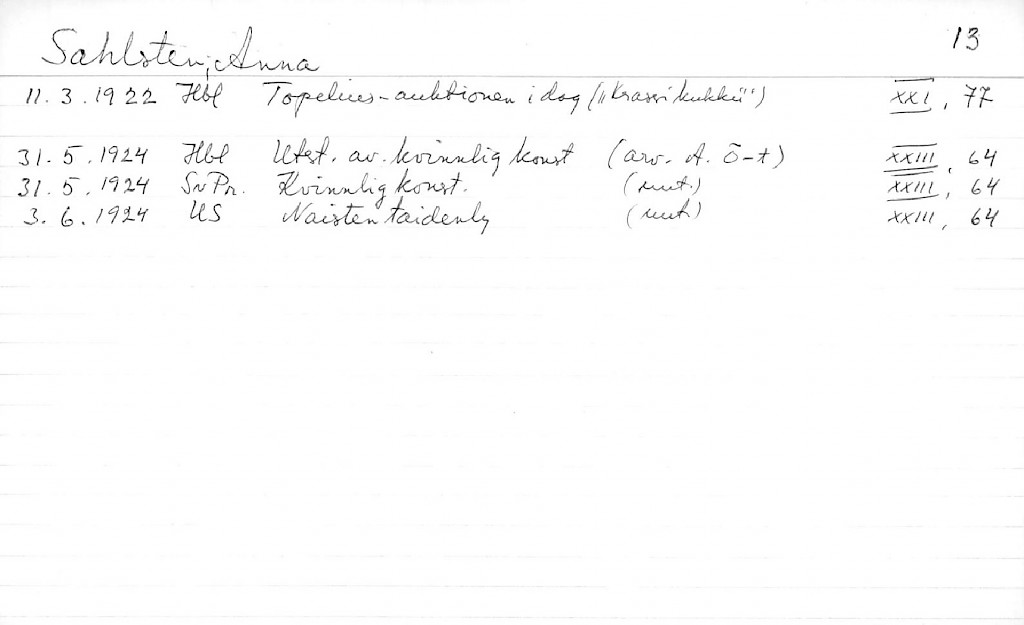 13
Sahlsten, Anna
11. 3. 1922 Hbl Topelius-auktionen i dag („Krassikukkii") XXI, 77
31. 5. 1924 Hbl Utst. av. kvinnlig konst (arv. A. Ö-t) XXIII, 64
31. 5. 1924 Sv Pr. Kvinnlig konst. (mut.) XXIII, 64
3. 6. 1924 US Naisten taidenly (mut.) XXIII, 64